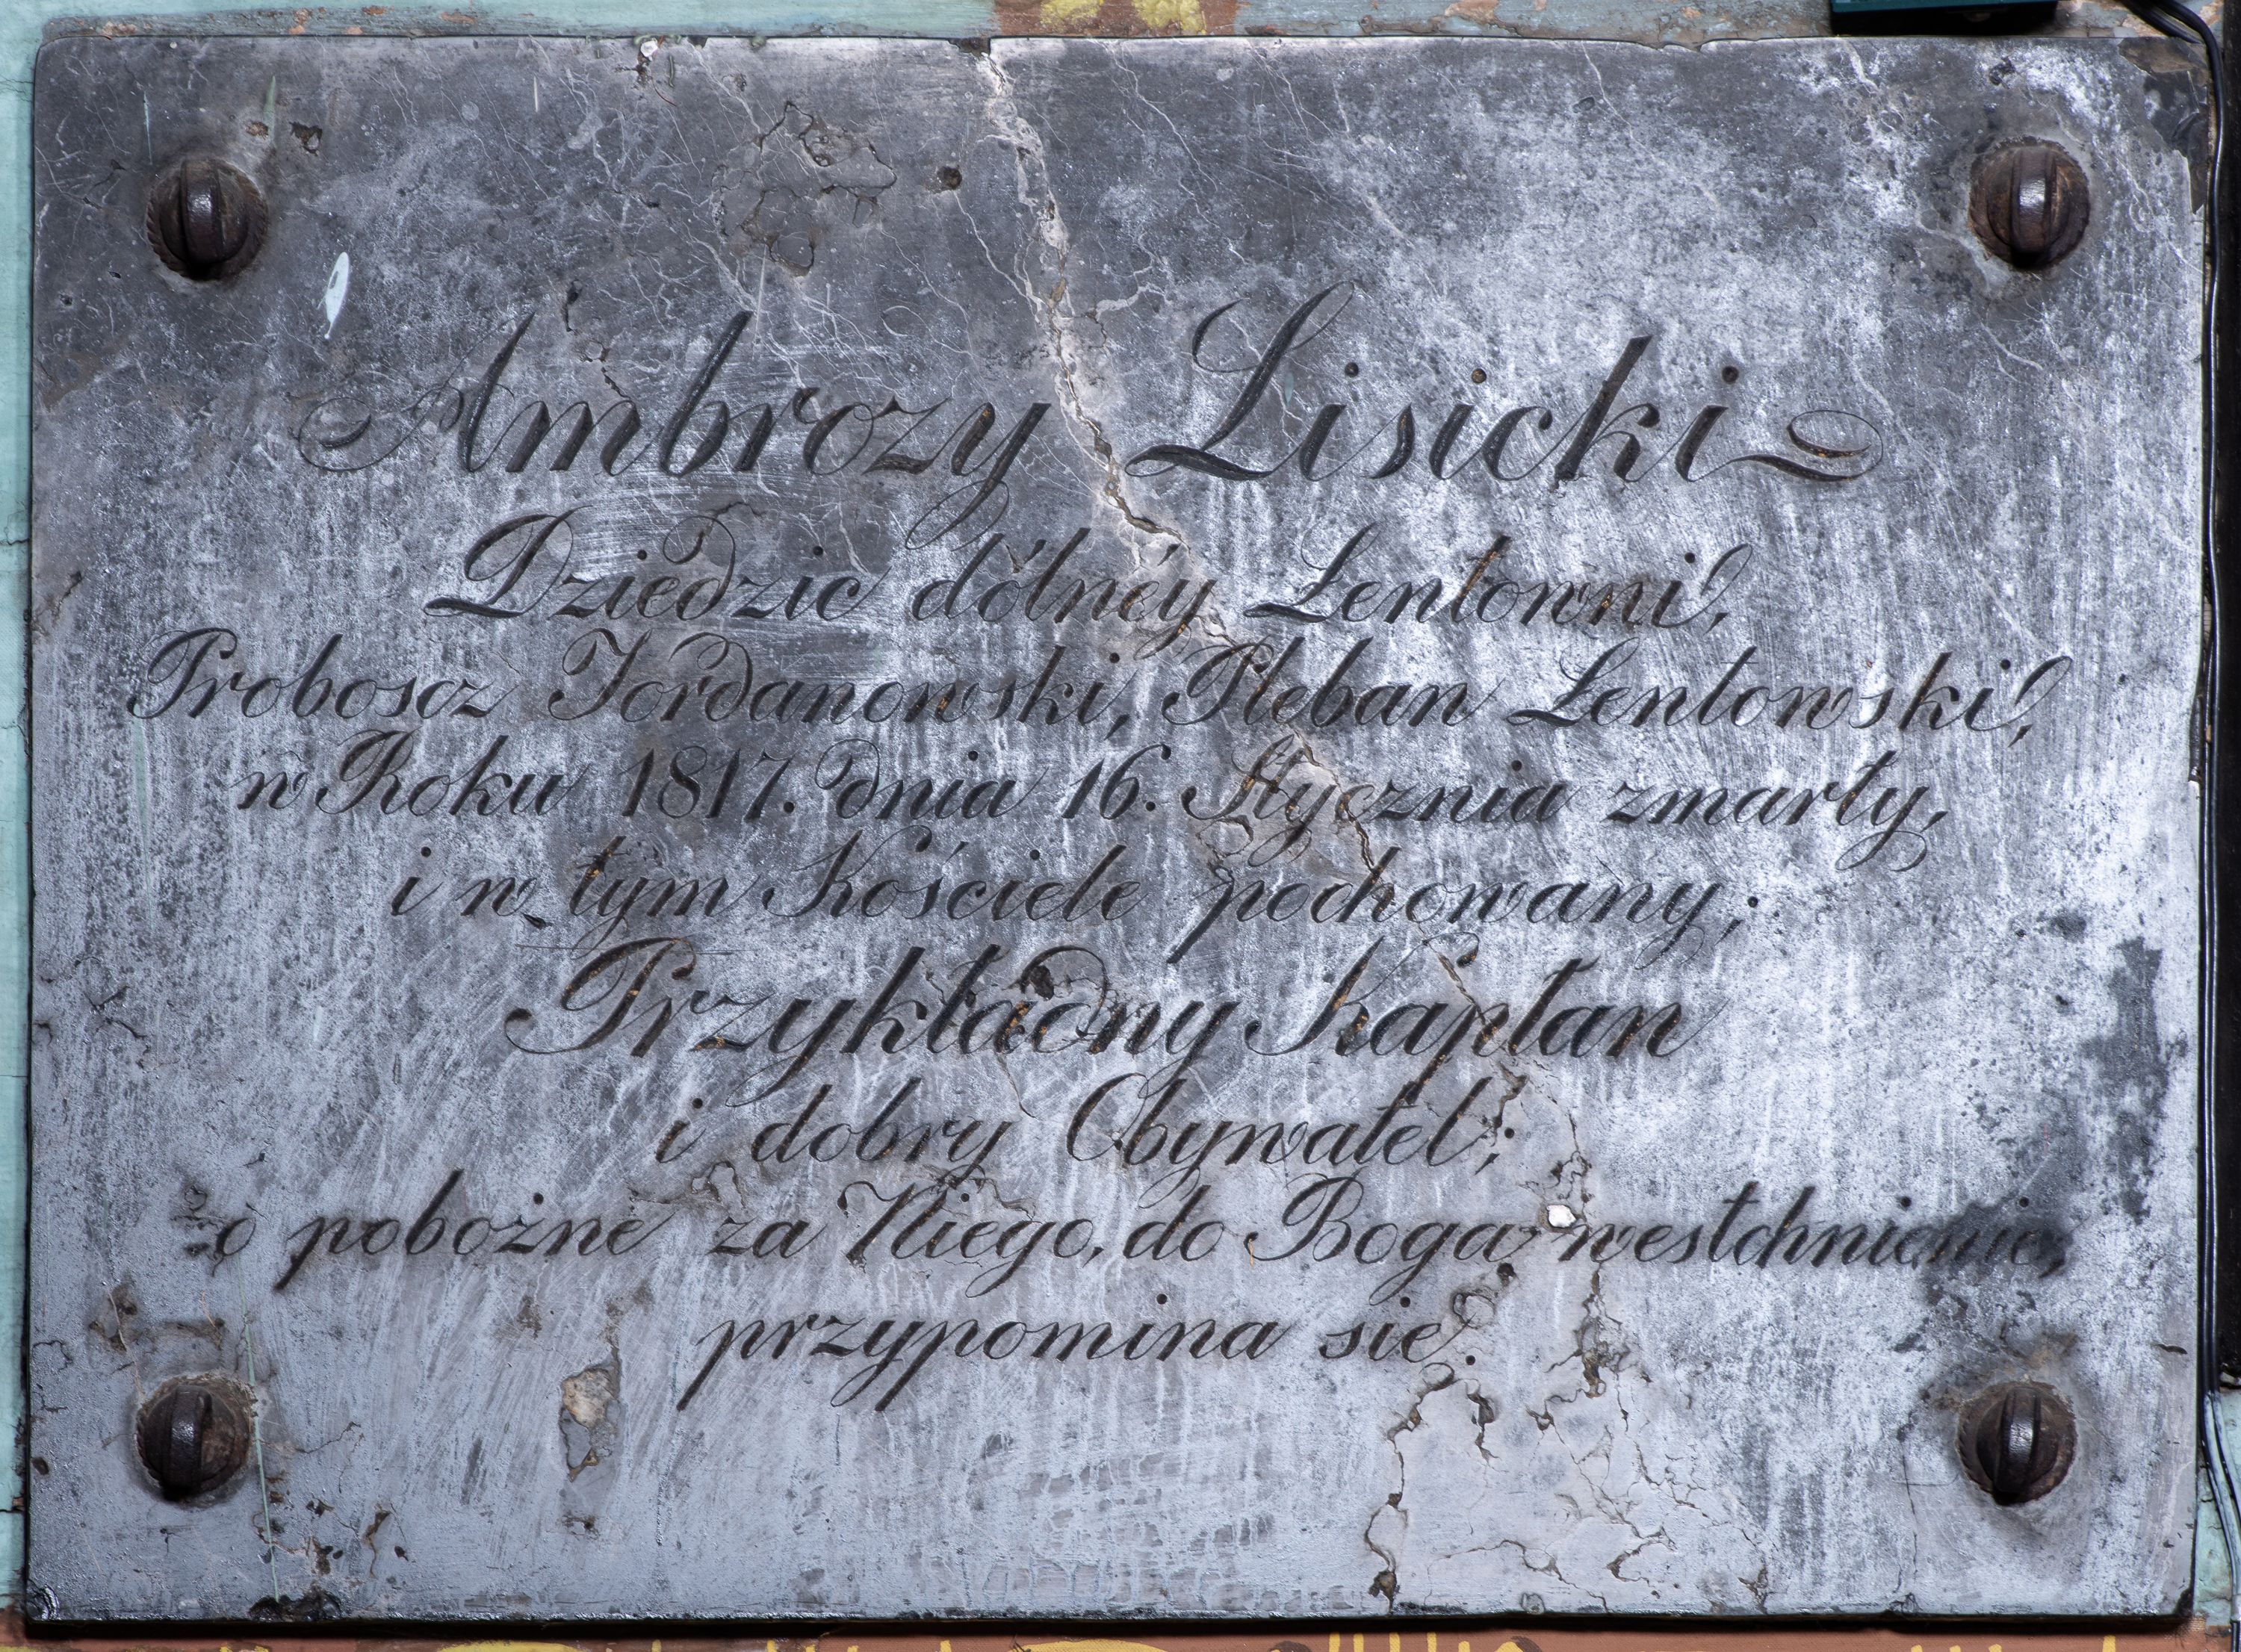 Ambrozy Lisicki
Dziedzic dólnéy Łentowni,
Proboscz Jordanowski, Pleban Łentowski,
w Roku 1817. dnia 16. Stycznia zmarły,
i w tym Kościele pochowany;
Przykładny Kapłan
i dobry Obywatel;
o pobożne za Niego, do Boga westchnienie,
przypomina się.